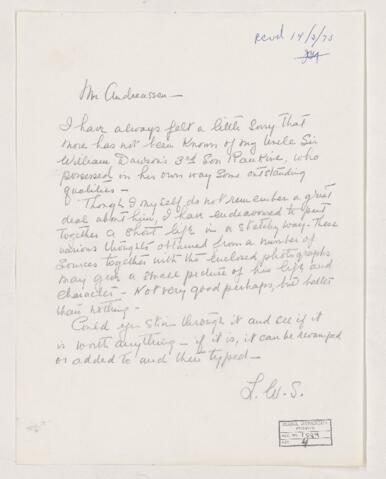 recvd 14/2/75
Mr Andreassen —
I have always felt a little sorry that
more has not been known of my uncle Sir
William Dawson's 3rd son Rankine, who
possessed in his own way some outstanding
qualities —
Though I myself do not remember a great
deal about him, I have endeavoured to put
together a short life in a sketchy way. These
various thoughts obtained from a number of
sources together with the enclosed photographs
may give a small picture of his life and
character — Not very good perhaps, but better
than nothing —
Could you skim through it and see if it
is worth anything — if it is, it can be revamped
or added to and then typed —
L. W. S.
McGILL UNIVERSITY
ARCHIVES
ACC. NO. 1589
REF. 4